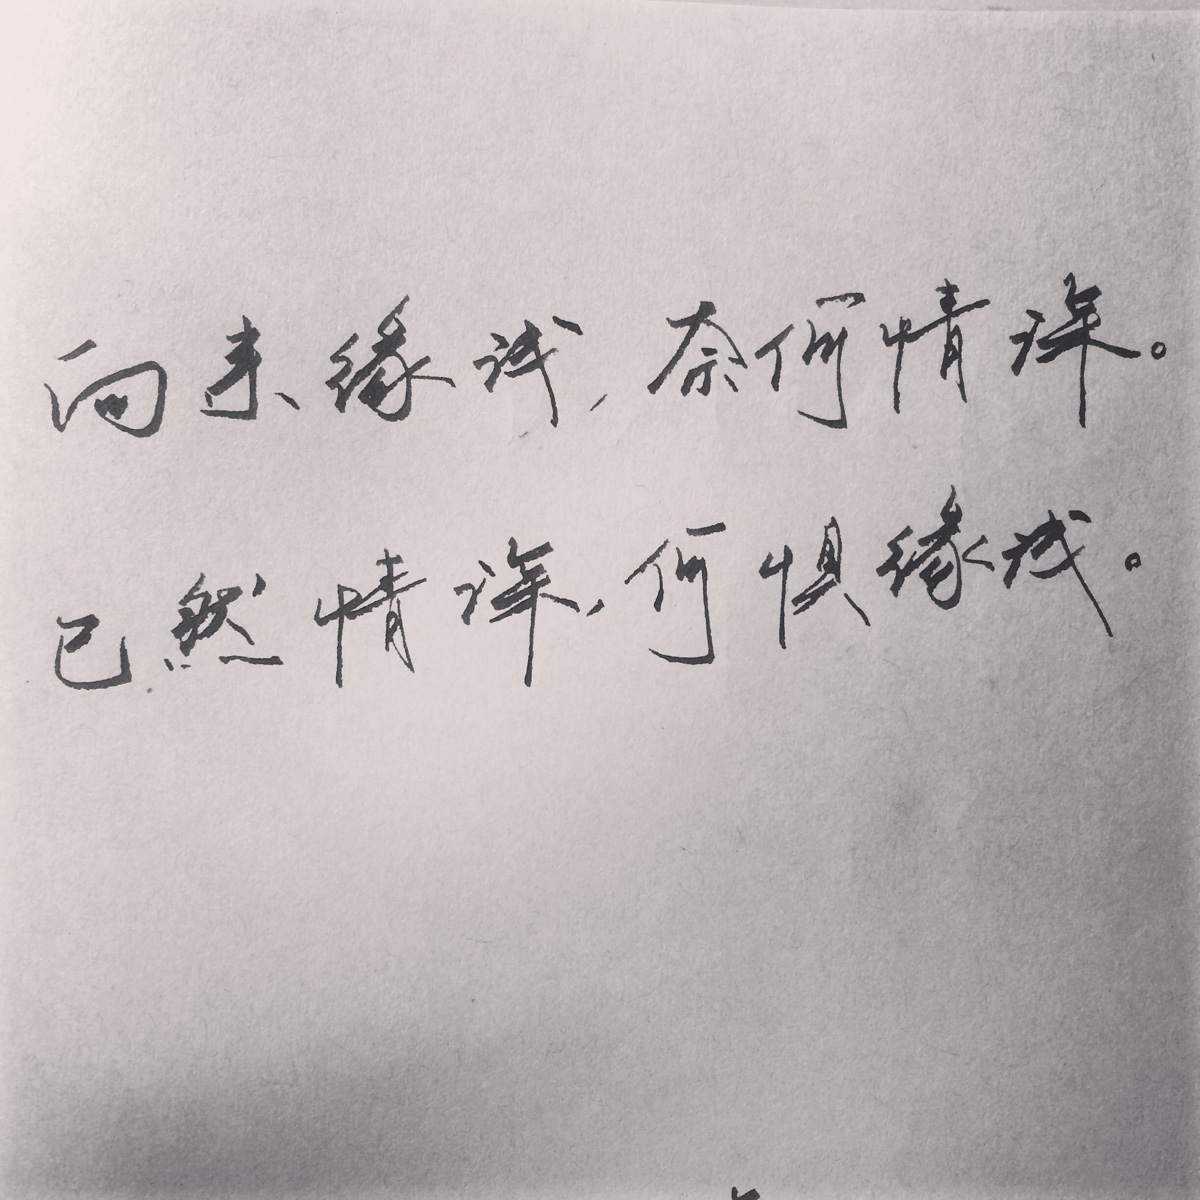 向来缘浅，奈何情深。
已然情深，何惧缘浅。